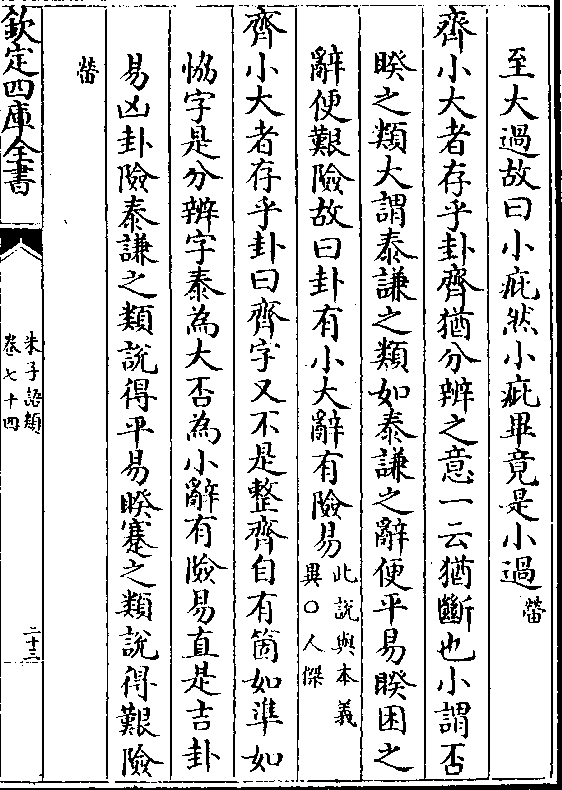 至大過故曰小疵然小疵畢竟是小過㽦
齊小大者存乎卦齊猶分辨之意一云猶斷也小謂否
睽之類大謂泰謙之類如泰謙之辭便平易睽困之
辭便艱險故曰卦有小大辭有險易此說與本義異○人傑
齊小大者存乎卦曰齊字又不是整齊自有箇如準如
恊字是分辨字泰為大否為小辭有險易直是吉卦
易凶卦險泰謙之類說得平易睽蹇之類說得艱險
㽦
欽定四庫全書
朱子語類
卷七十四
二十三